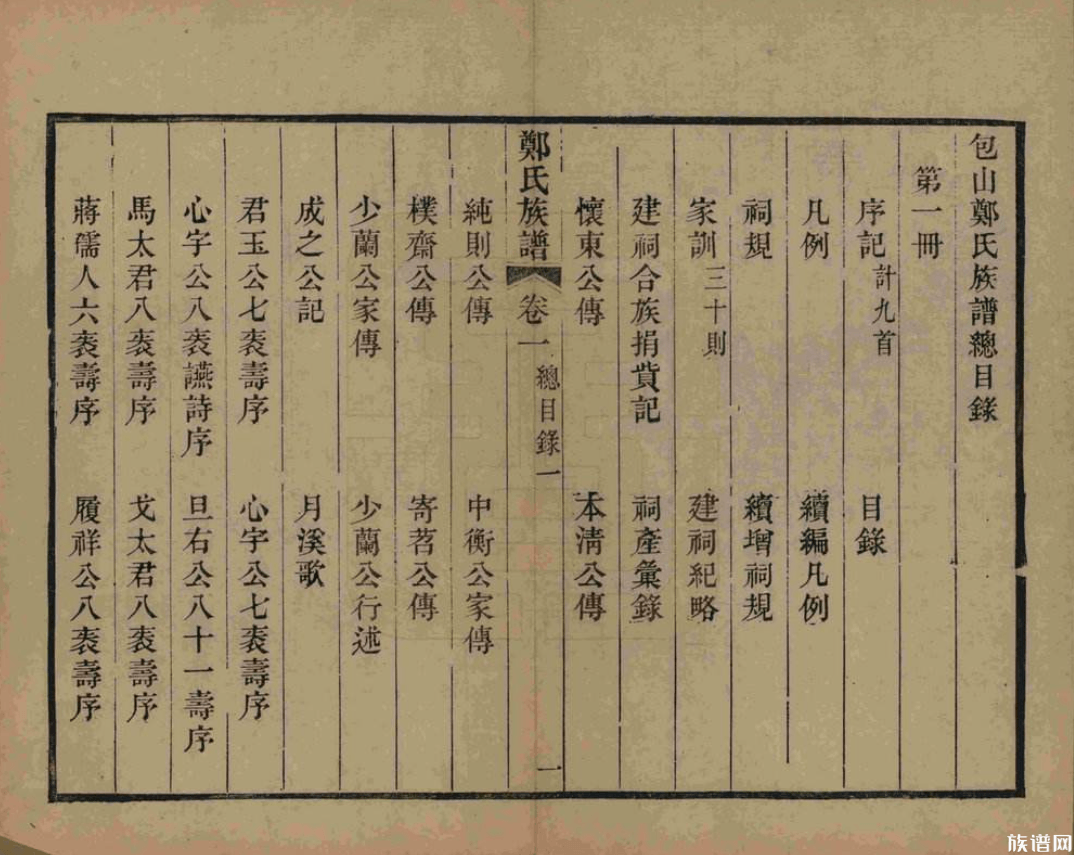 包山鄭氏族譜總目錄
第一冊
序記計九首　目錄
凡例　續編凡例
祠規　續增祠規
家訓三十則　建祠紀略
建祠合族捐貲記　祠產彙錄
懷東公傳　本淸公傳
鄭氏族譜　卷一　總目錄一　一
純則公傳　中衡公家傳
樸齋公傳　寄茗公傳
少蘭公家傳　少蘭公行述
成之公記　月溪歌
君玉公七袠壽序　心字公七袠壽序
心字公八袠讌詩序　旦右公八十一壽序
馬太君八袠壽序　戈太君八袠壽序
蔣孺人六袠壽序　履祥公八袠壽序
族谱网